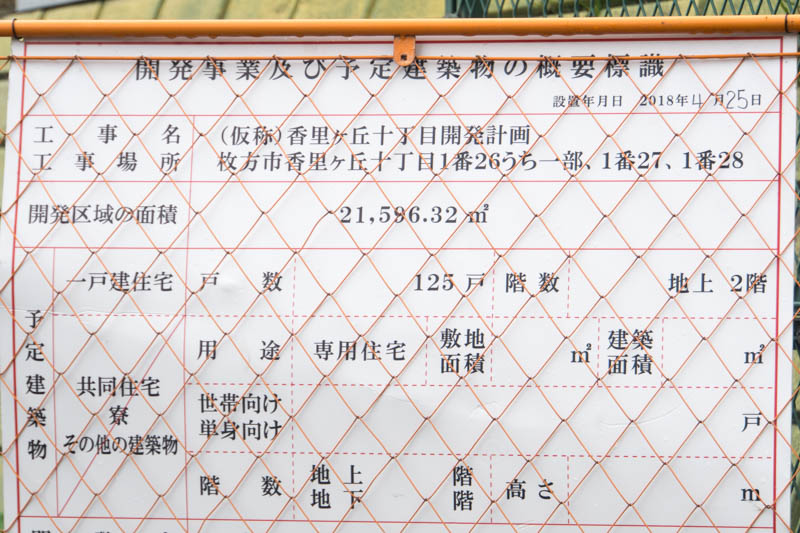 開発事業及び予定建築物の概要標識
設置年月日 2018年4月25日
工事名 (仮称)香里ヶ丘十丁目開発計画
工事場所 枚方市香里ヶ丘十丁目1番26うち一部、1番27、1番28
開発区域の面積 21,596.32㎡
予定建築物
一戸建住宅 戸数 125戸 階数 地上 2階
共同住宅
寮
その他の建築物
用途 専用住宅 敷地面積 ㎡ 建築面積 ㎡
世帯向け
単身向け 戸
階数 地上 階
地下 階
高さ m